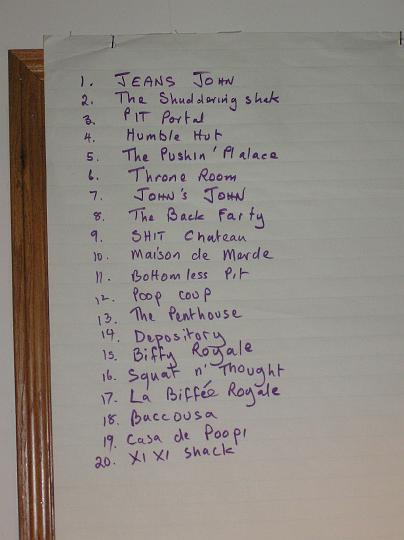 1. JEANS JOHN
2. The Shuddering shek
3. PIT Portal
4. Humble Hut
5. The Pushin' Plalace
6. Throne Room
7. JOHN'S JOHN
8. The Back Farty
9. SHIT Chateau
10. Maison de Merde
11. Bottomless Pit
12. Poop coup
13. The Penthouse
14. Depository
15. Biffy Royale
16. Squat n' Thought
17. La Biffée Royale
18. Baccousa
19. Casa de Poopi
20. XI XI shack